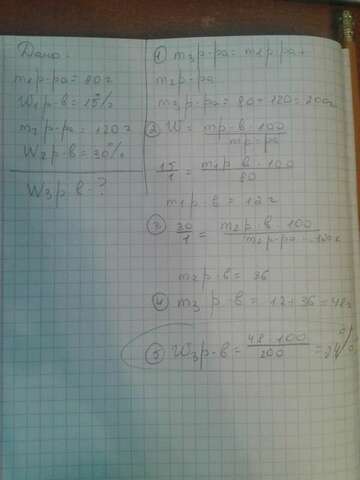 Дано:
m1р-ра = 80г
W1р.в = 15%
m2р-ра = 120г
W2р.в = 30%
W3р.в - ?
① m3р-ра = m1р-ра +
m2р-ра
m3р-ра = 80 + 120 = 200г
② W = mр.в · 100
mр-ра
15 = m1р.в · 100
1 80
m1р.в = 12г
③ 30 = m2р.в · 100
1 m2р-ра = 120г
m2р.в = 36
④ m3р.в = 12 + 36 = 48г
⑤ W3р.в = 48 · 100 = 24%
200